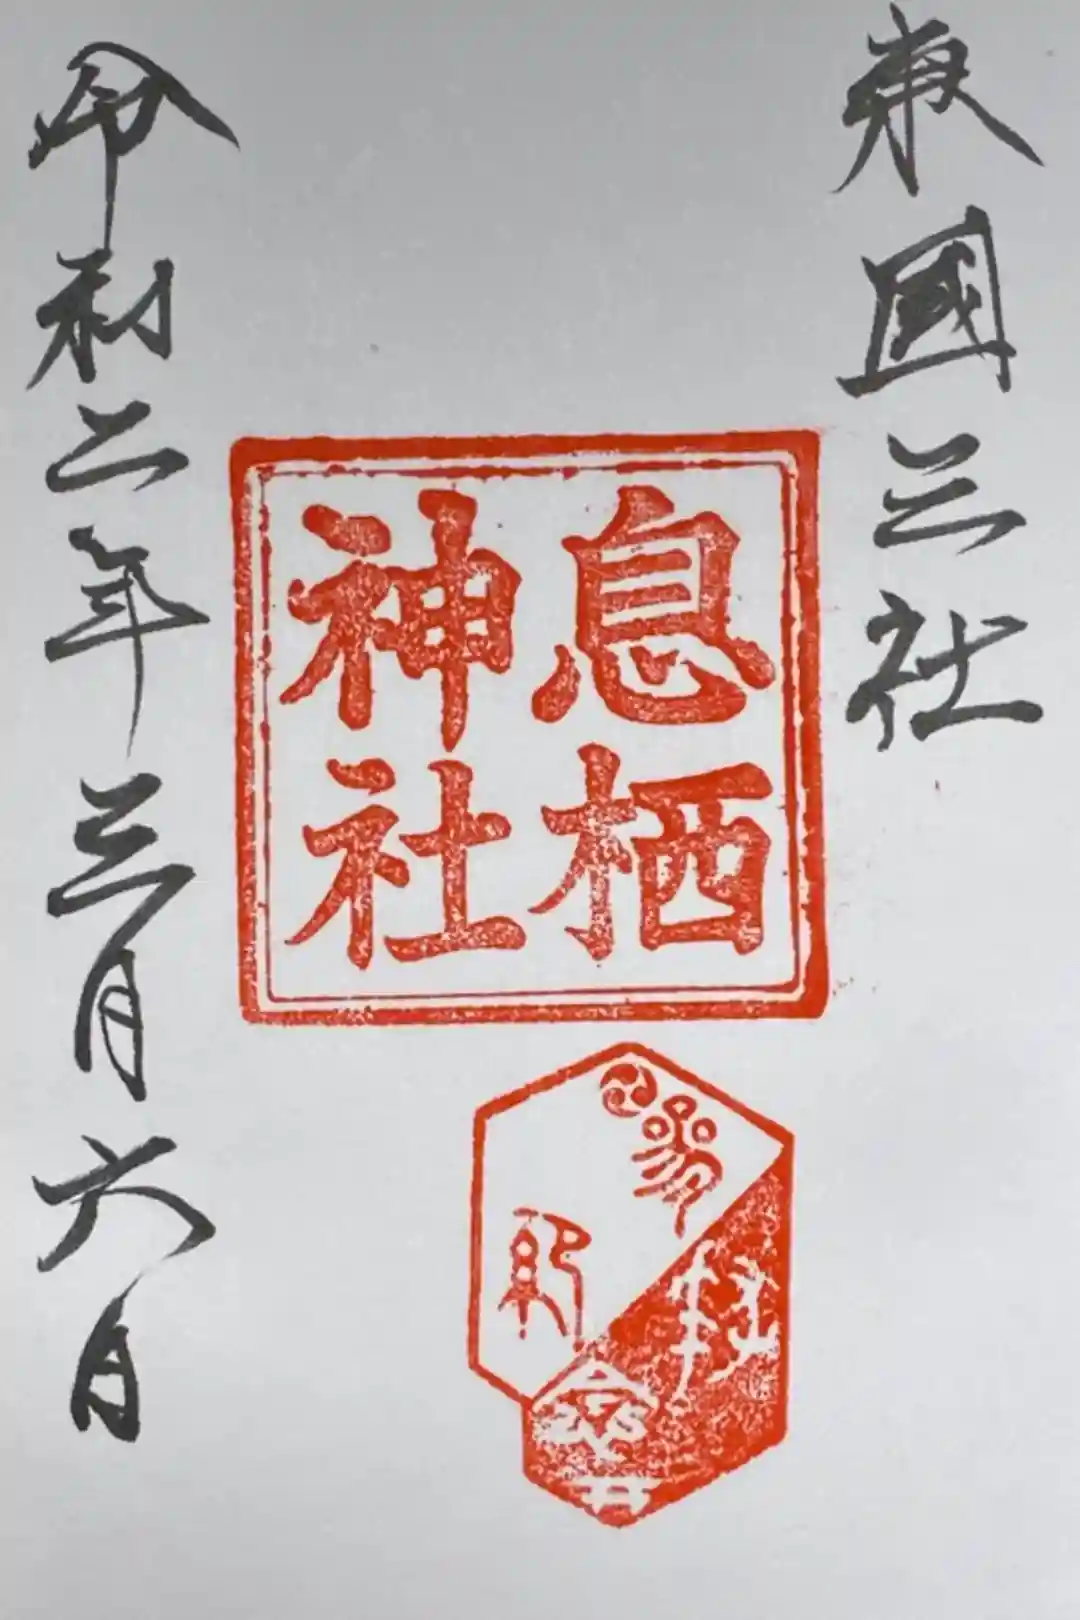 東國三社
息栖
神社
参拝
記
令和二年三月六日